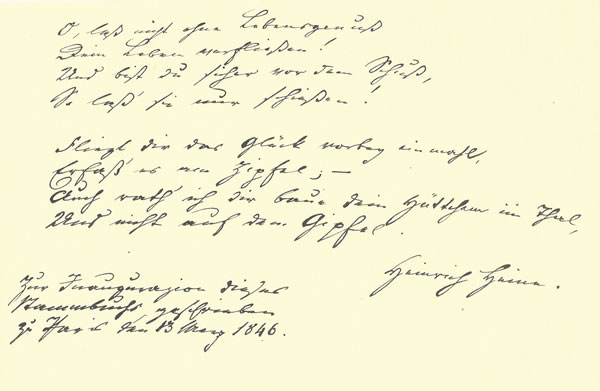 O, laß nicht ohne Lebensgenuß
Dein Leben verfließen!
Und bist du sicher vor dem Schuß,
So laß sie nur schießen!
Fliegt dir das Glück vorbey einmahl,
Erfaß es am Zipfel; —
Auch rath' ich dir baue dein Hüttchen im Thal,
Und nicht auf dem Gipfel.
Heinrich Heine.
Zur Inauguration dieses
Stammbuchs, geschrieben
zu Paris den 13 März 1846.